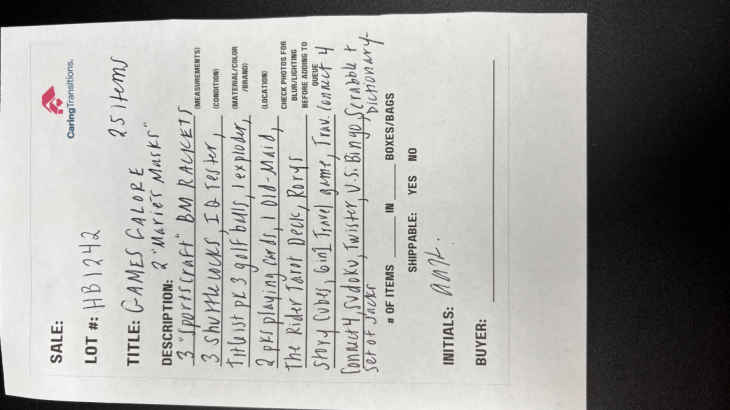 CaringTransitions.
SALE:
LOT #: HB1242
TITLE: GAMES GALORE 25 items
2 "Marier Masks"
DESCRIPTION:
3 "Sportscraft" BM RACKETS (MEASUREMENTS)
3 Shuttlecocks, IQ Tester, (CONDITION)
Titleist pk 3 golf balls, 1 exploder, (MATERIAL/COLOR /BRAND)
2 pks playing cards, 1 Old-Maid, (LOCATION)
The Rider Tarot Deck, Rorys CHECK PHOTOS FOR BLUR/LIGHTING BEFORE ADDING TO QUEUE
Story Cubes, 6 in 1 Travel game, Trav. Connect 4
Connect 4, Sudoku, Twister, U.S. Bingo, Scrabble + Dictionary
Set of Jacks
# OF ITEMS ____ IN ____ BOXES/BAGS
SHIPPABLE: YES NO
INITIALS:
BUYER: